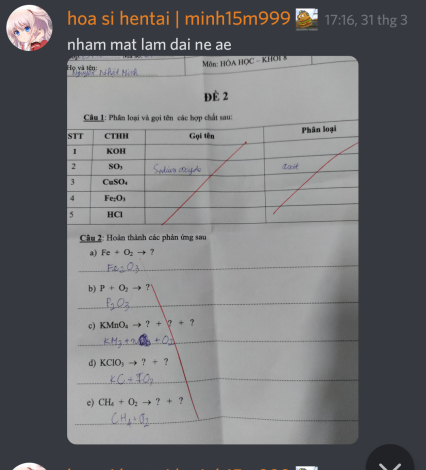 hoa si hentai | minh15m999 17:16, 31 thg 3
nham mat lam dai ne ae
Họ và tên: Nguyễn Nhật Minh
Môn: HÓA HỌC – KHỐI 8
ĐỀ 2
Câu 1: Phân loại và gọi tên các hợp chất sau:
STT CTHH Gọi tên Phân loại
1 KOH
2 SO₂
3 CuSO₄
4 Fe₂O₃
5 HCl
Câu 2: Hoàn thành các phản ứng sau
a) Fe + O₂ → ?
Fe₂O₃
b) P + O₂ → ?
P₂O₃
c) KMnO₄ → ? + ? + ?
d) KClO₃ → ? + ?
e) CH₄ + O₂ → ? + ?